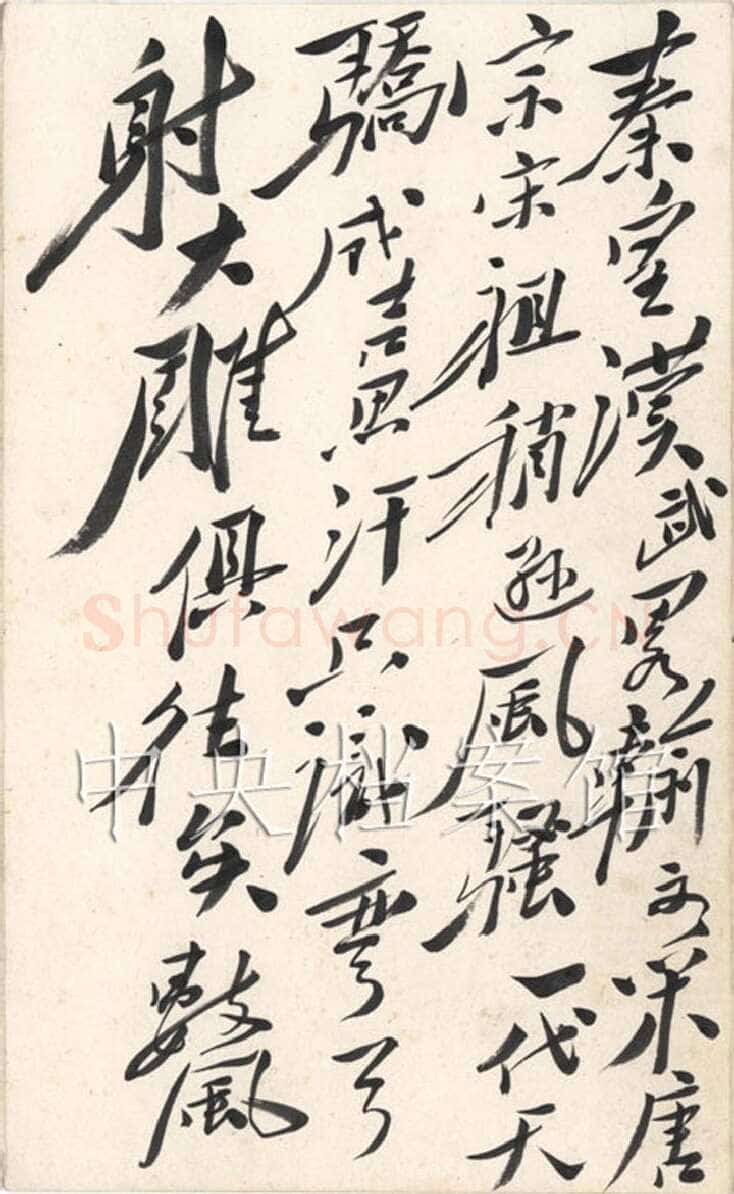 秦皇漢武畧輸文采唐
宗宋祖稍遜風騷一代天
驕成吉思汗只識弯弓
射大雕俱往矣數風
Shufawang.CN
中央档案馆